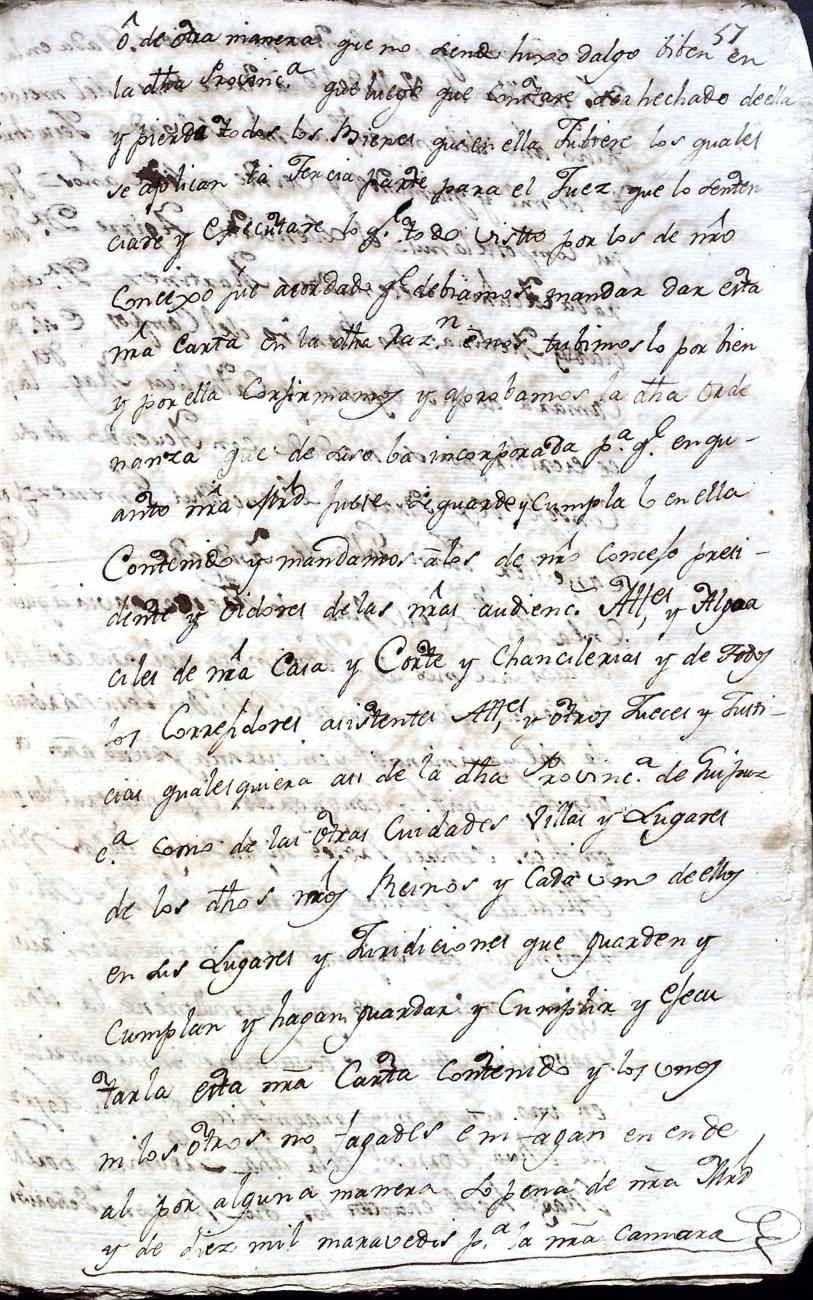 57
ó, de otra manera que no siendo hixo dalgo biben en
la dha Provinc.ª que luego que constare sea hechado de ella
y pierda todos los Bienes que en ella Tubiere los quales
se aplican la Tercia parte para el Juez que lo senten
ciare y executare lo q.l todo visto por los de nro
Concexo fue acordado q.e debiamos mandar dar esta
nra Carta en la dha Raz.n é nos tubimoslo por bien
y por ella Confirmamos y aprobamos la dha Orde
nanza que de suso ba incorporada p.ª q.e en qu-
anto nra Mrd fuese se guarde y Cumpla lo en ella
Contenido y mandamos á los de nro Consejo presi-
dente y Oidores de las nras audienc.s Alldes, y Algua
ciles de nra Casa y Corte y Chancilerias y de Todos
los Corregidores asistentes Alldes, y otros Jueces y Justi-
cias qualesquiera asi de la dha Provinc.ª de Guipuz
c.ª como de las otras Cuidades Villas y Lugares
de los dhos nros Reinos y Cada uno de ellos
en sus Lugares y Juridiciones que guarden y
Cumplan y hagan guardar y Cumplir y esecu
tarla esta nra Carta Contenido y los unos
ni los otros no fagades é ni fagan en ende
al por alguna manera so pena de nra Mrd
y de diez mil maravedis p.ª la nra Camara